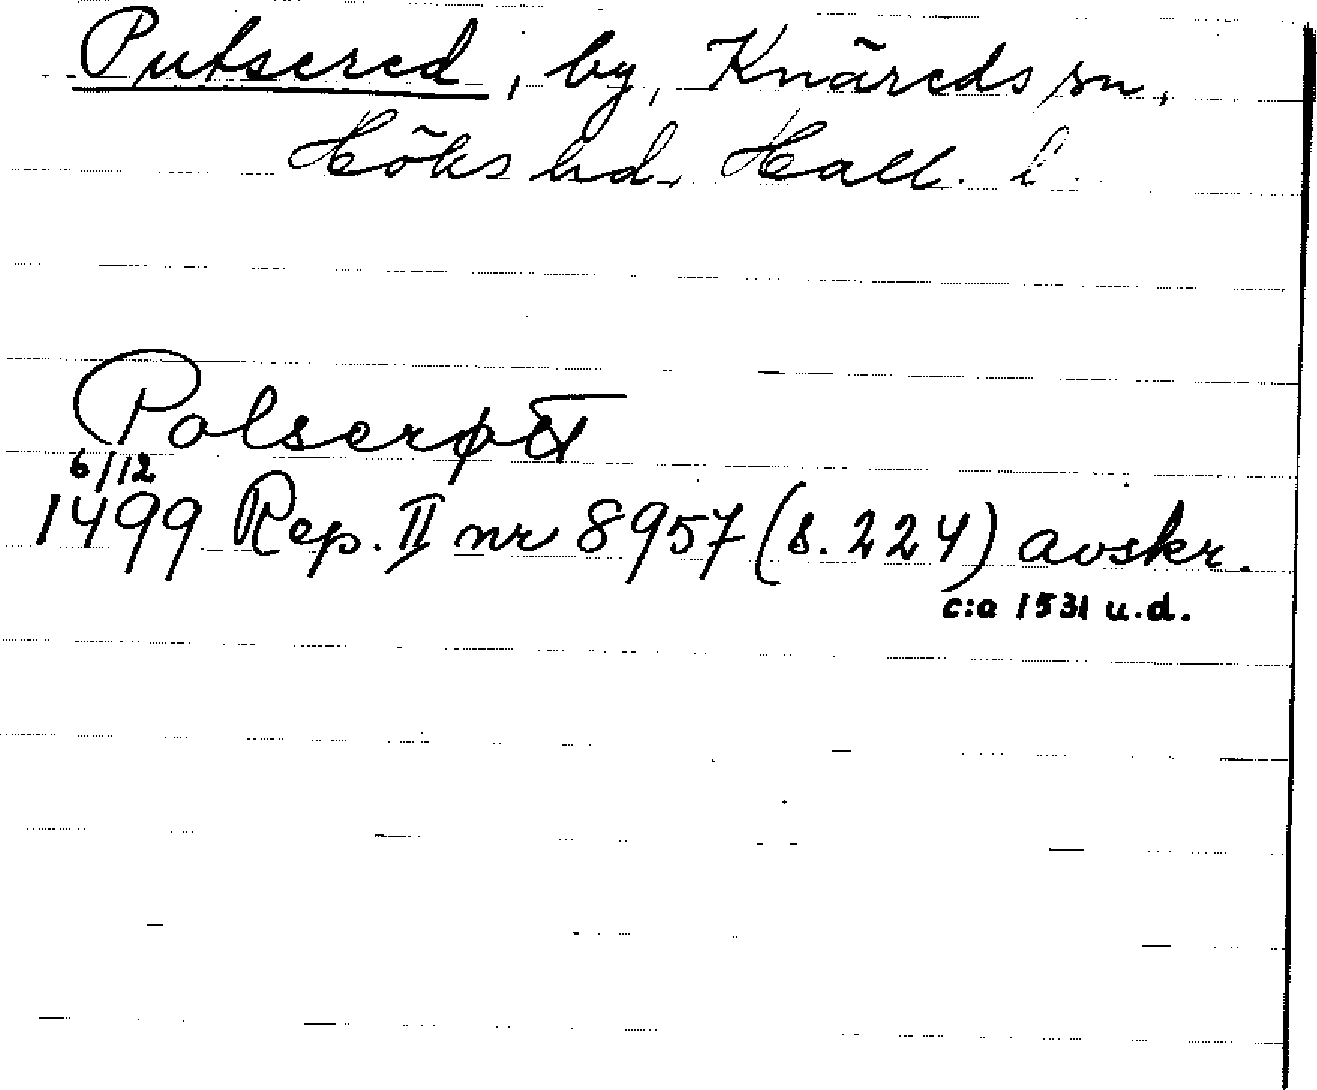 Putsered, by, Knäreds sn,
Höks hd. Hall. l.
Polserøtt
6/12
1499 Rep. II nr 8957 (s. 224) avskr.
c:a 1531 u.d.